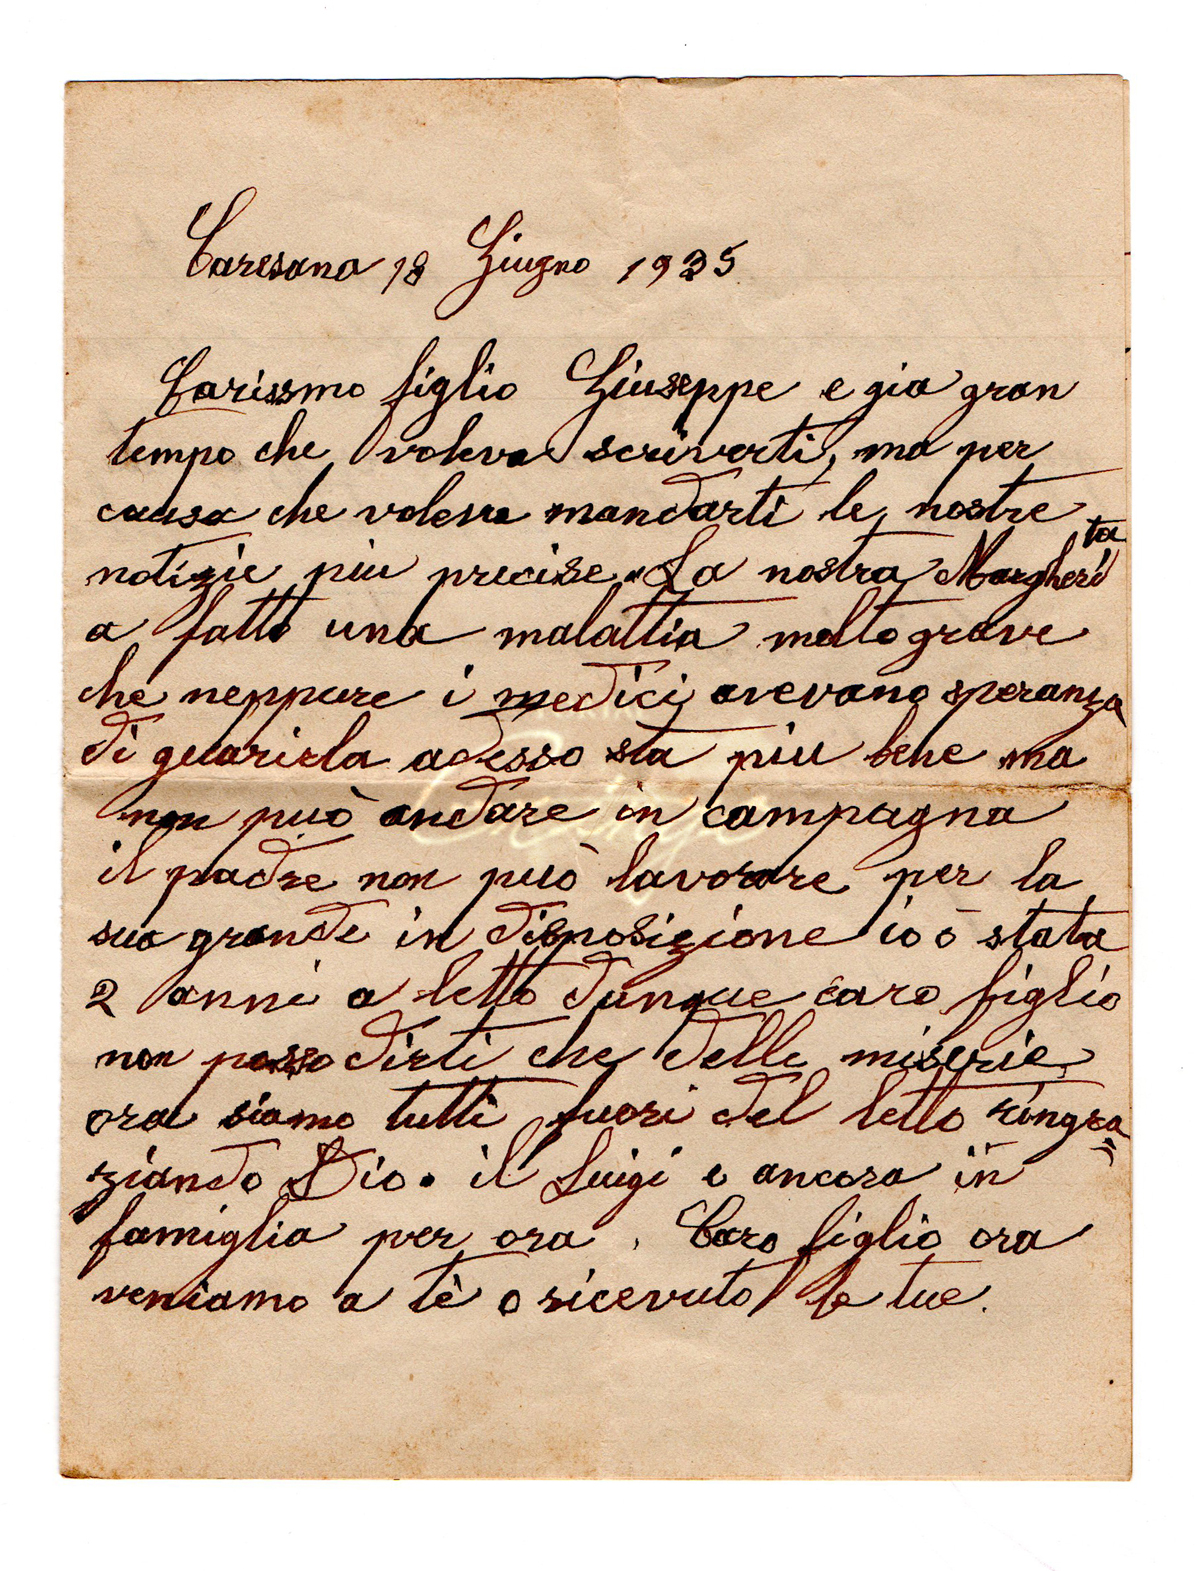 Caresana 18 Giugno 1935
Carissmo figlio Giuseppe e gia gran
tempo che voleva scriverti, ma per
causa che voleva mandarti le nostre
notizie piu precise. La nostra Margheri
ta
a fatto una malattia molto grave
che neppure i medici avevano speranza
di guarirla adesso sta piu bene ma
non può andare in campagna
il padre non può lavorare per la
sua grande in disposizione io ò stata
2 anni a letto dunque caro figlio
non posso dirti che delle miserie
ora siamo tutti fuori del letto ringra
ziando Dio. il Luigi e ancora in
famiglia per ora. Caro figlio ora
veniamo a tè o ricevuto la tue.